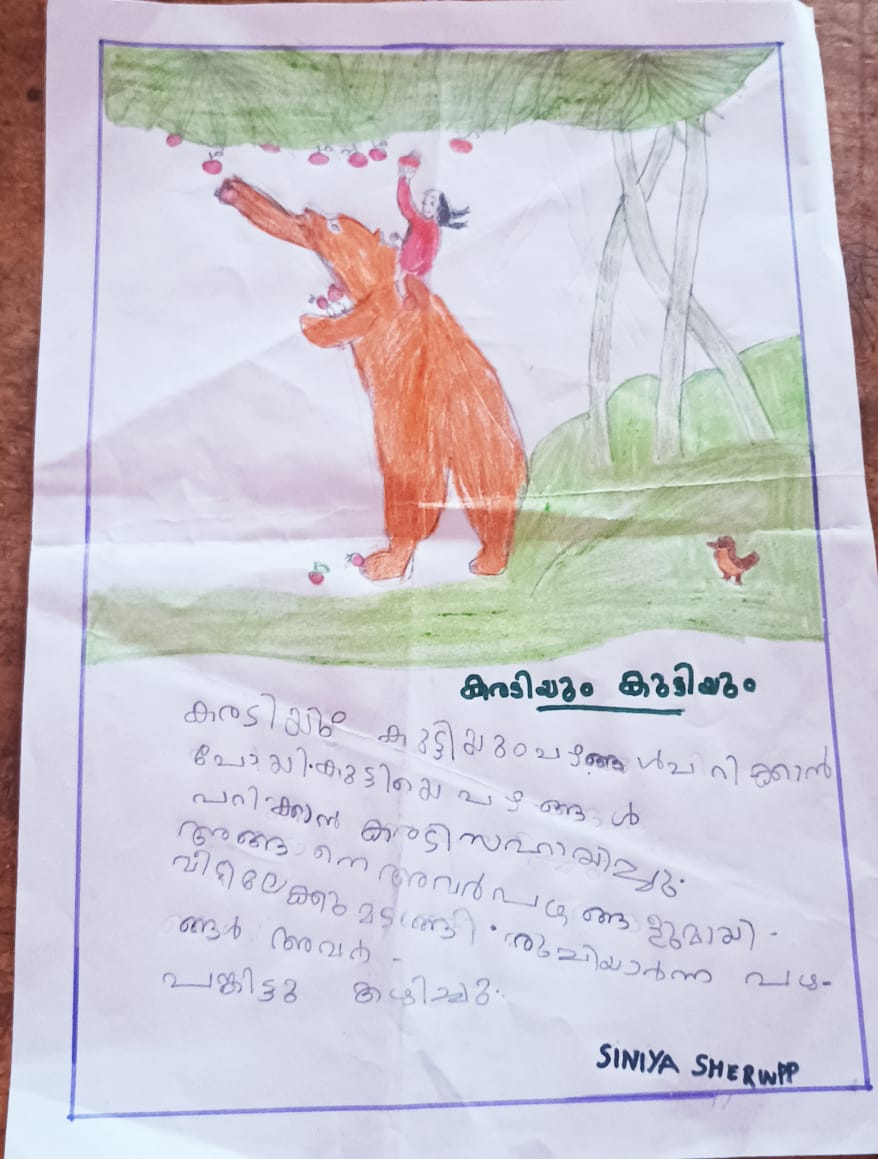 കരടിയും കുട്ടിയും
കരടിയും കുട്ടിയും പഴങ്ങൾ പറിക്കാൻ
പോയി. കുട്ടിയെ പഴങ്ങൾ
പറിക്കാൻ കരടി സഹായിച്ചു.
അങ്ങനെ അവർ പഴങ്ങളുമായി
വീട്ടിലേക്കു മടങ്ങി. രുചിയാർന്ന പഴ-
ങ്ങൾ അവർ
പങ്കിട്ടു കഴിച്ചു.
SINIYA SHERIN PP